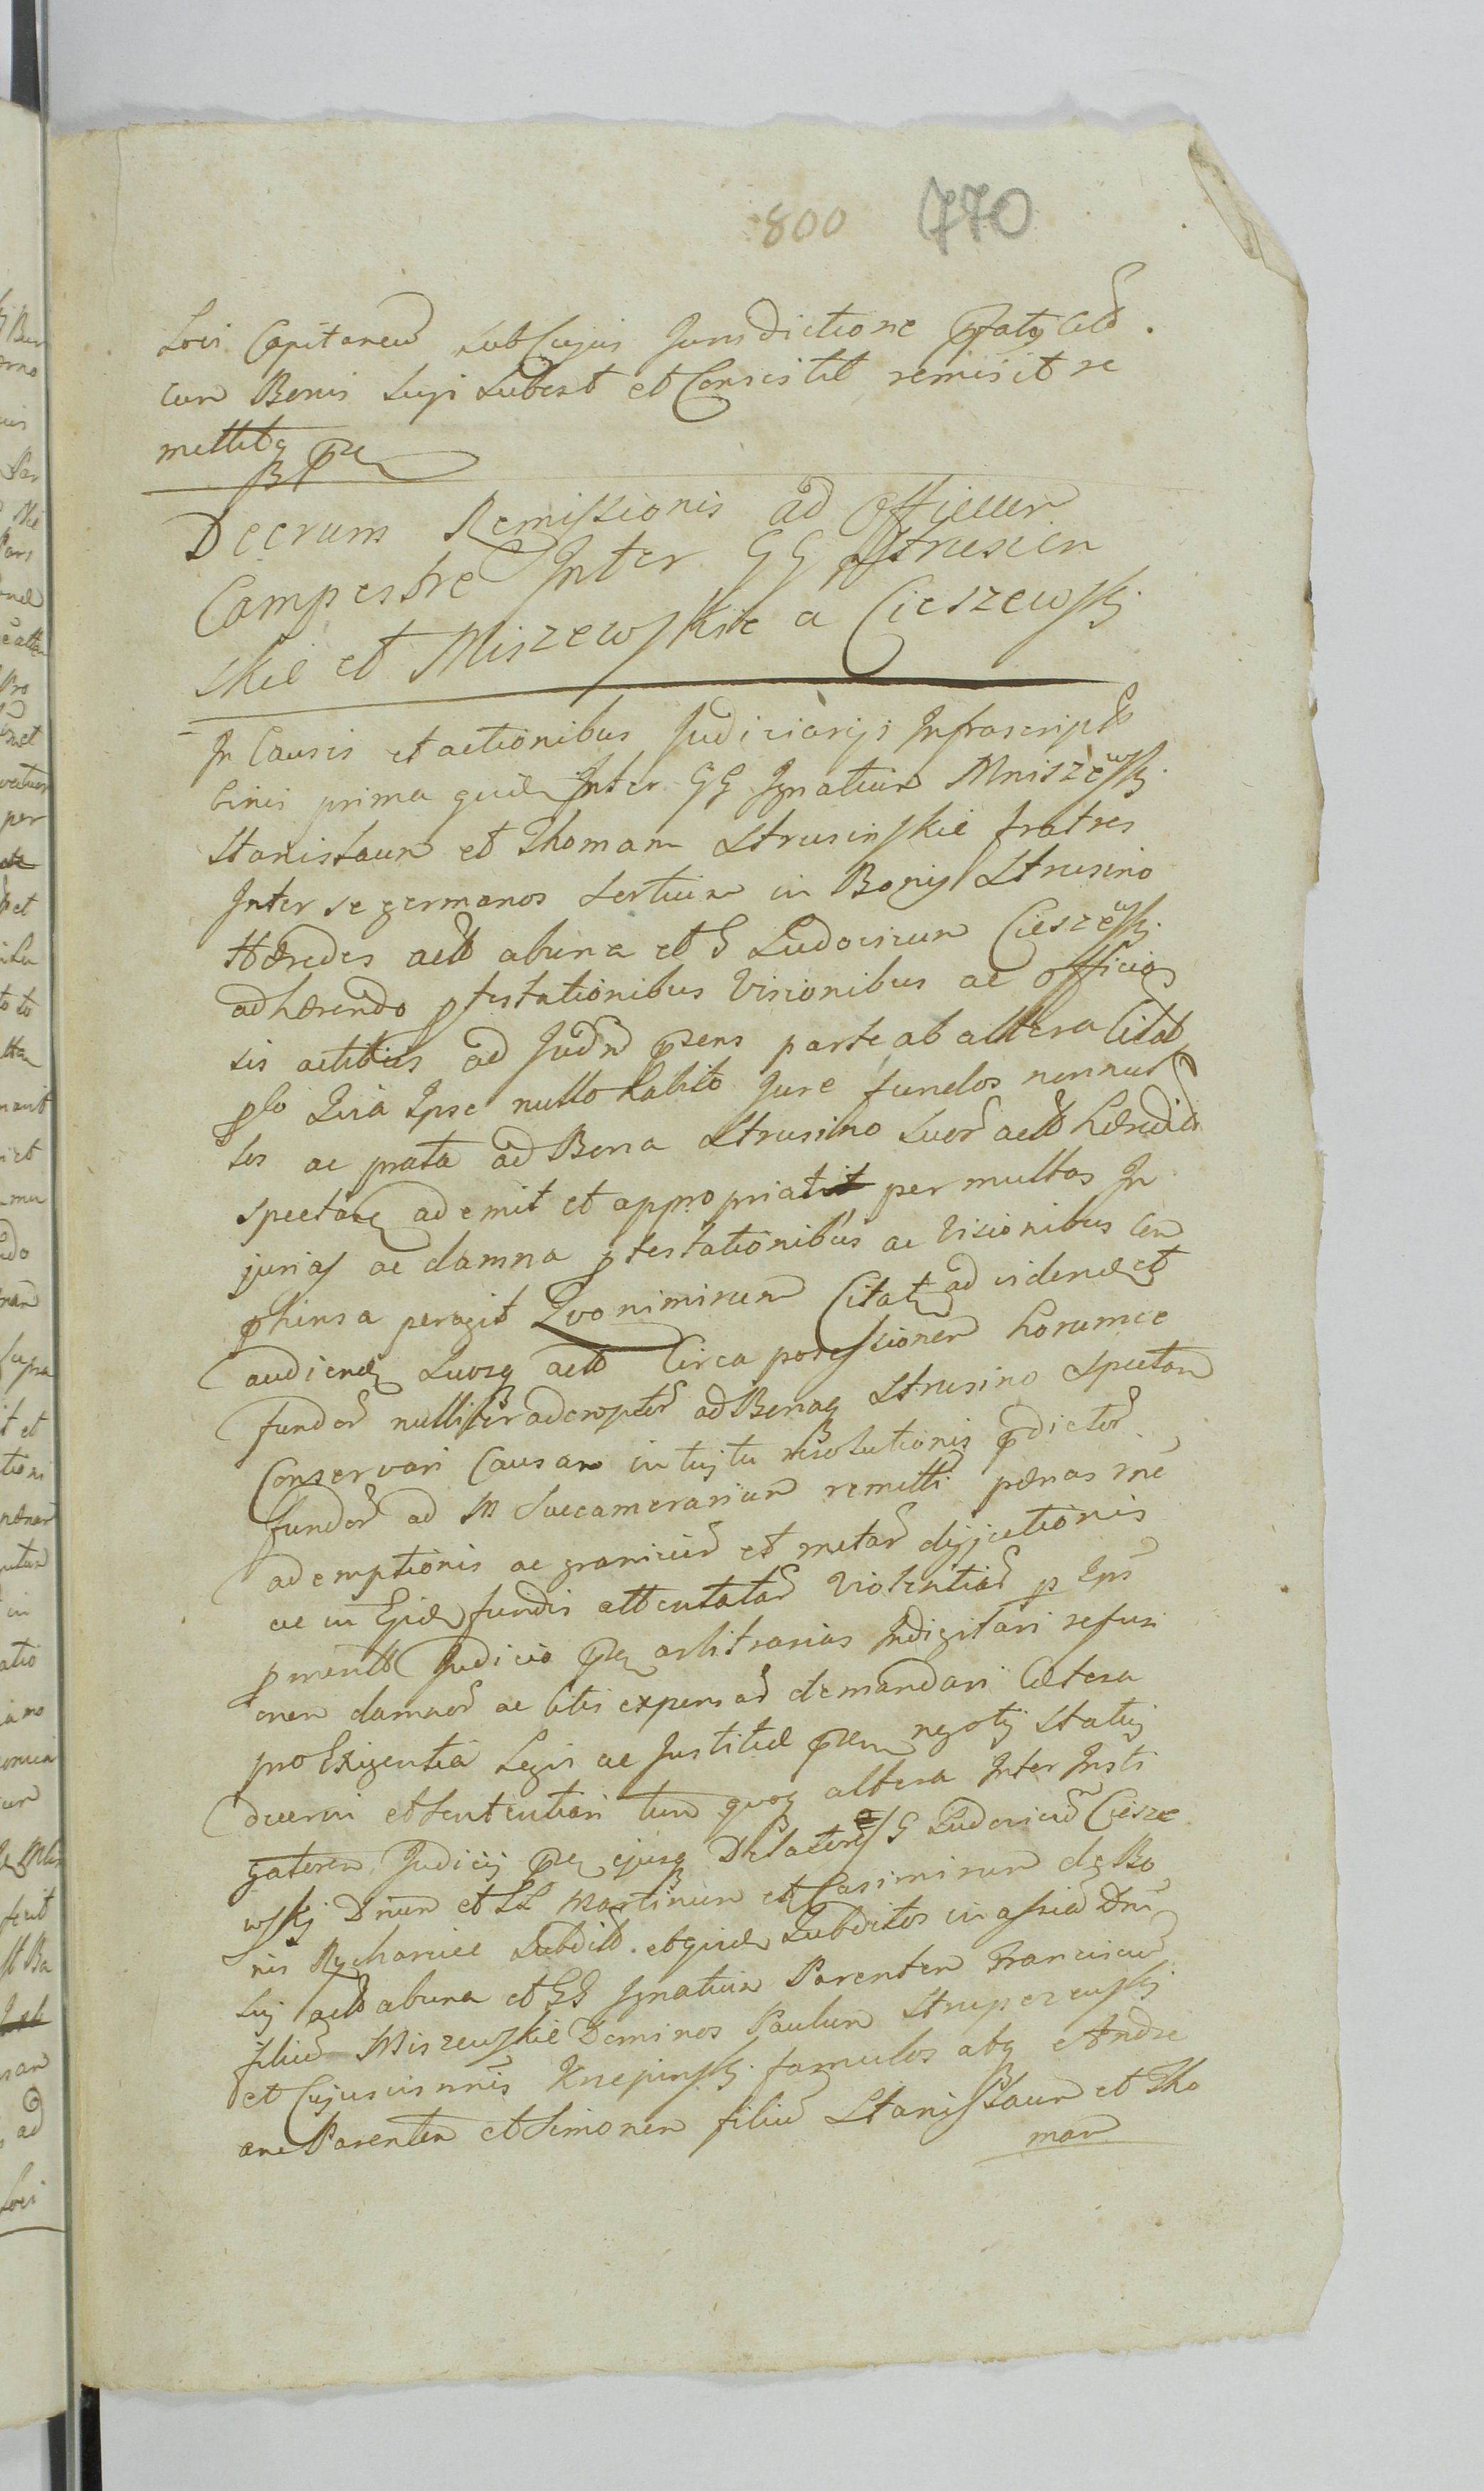 800 770
Loci Capitaneu sub Cujus Jurisdictione pfatq Citt.
cum Bonis Suyi Subest et Consistit remisit re
mittitq
Decrum Remissionis ad officium
Campestre Inter GG Strusin
skie et Miszewskie a Cieszewskj
In Causis et actionibus Judiciarijs Infrascript
binis prima quid Inter GG Ignatium Mniszewskj
Stanislaum et Thomam Strusinskie fratres
Inter se germanos in Bonys Strusino
Hæredes act ab una et G Ludovicum Cieszewskj
adhærendo ptestationibus Visionibus ac officio
sis actibus ad Jud psens parte ab altera Citat
plo Qvia Ipse nullo habito Jure fundos nonnul
los ac prata ad Bona Strusino Suor act hæredit
spectan ademit et appropriat per multas In
jurias ac damna ptestationibus ac Visionibus Con
phensa peragit Qvo nimirum Citat ad videndq et
audiend Suosq act Circa possessionem horumce
fundor nulliter ademptor ad Bonaq Strusino spectan
Conservari Causam intujtu resolutionis pdictor
fundor ad M Succamerarium remitti pænas rne
ademptionis ac granicier et metar dijjectionis
ac in Ejsd fundis attentatar Violentiar p Ips
pmenti Judicio arbitrarias Indigitari refusi
onem damnor ac litis expensar demandari Cætera
pro Exigentia Legis ac Justitiæ negotij statuj
decerni et sententiari tum quoq altera Inter Insti
gatorem Judicij ejusq Delatores G Ludovicum Ciesze
wskj Dnum et LL Martinum et Casimirum de Bo
nis Rycharcice Subdit. Subditos in assia Dni
Suj act ab una et GG Ignatium Parentem Franciscum
filium Miszewskie Dominos Paulum
et Cujusvis nnis famulos atq Andre
am Parentem et Simonem filiu Stanislaum et Tho
mam